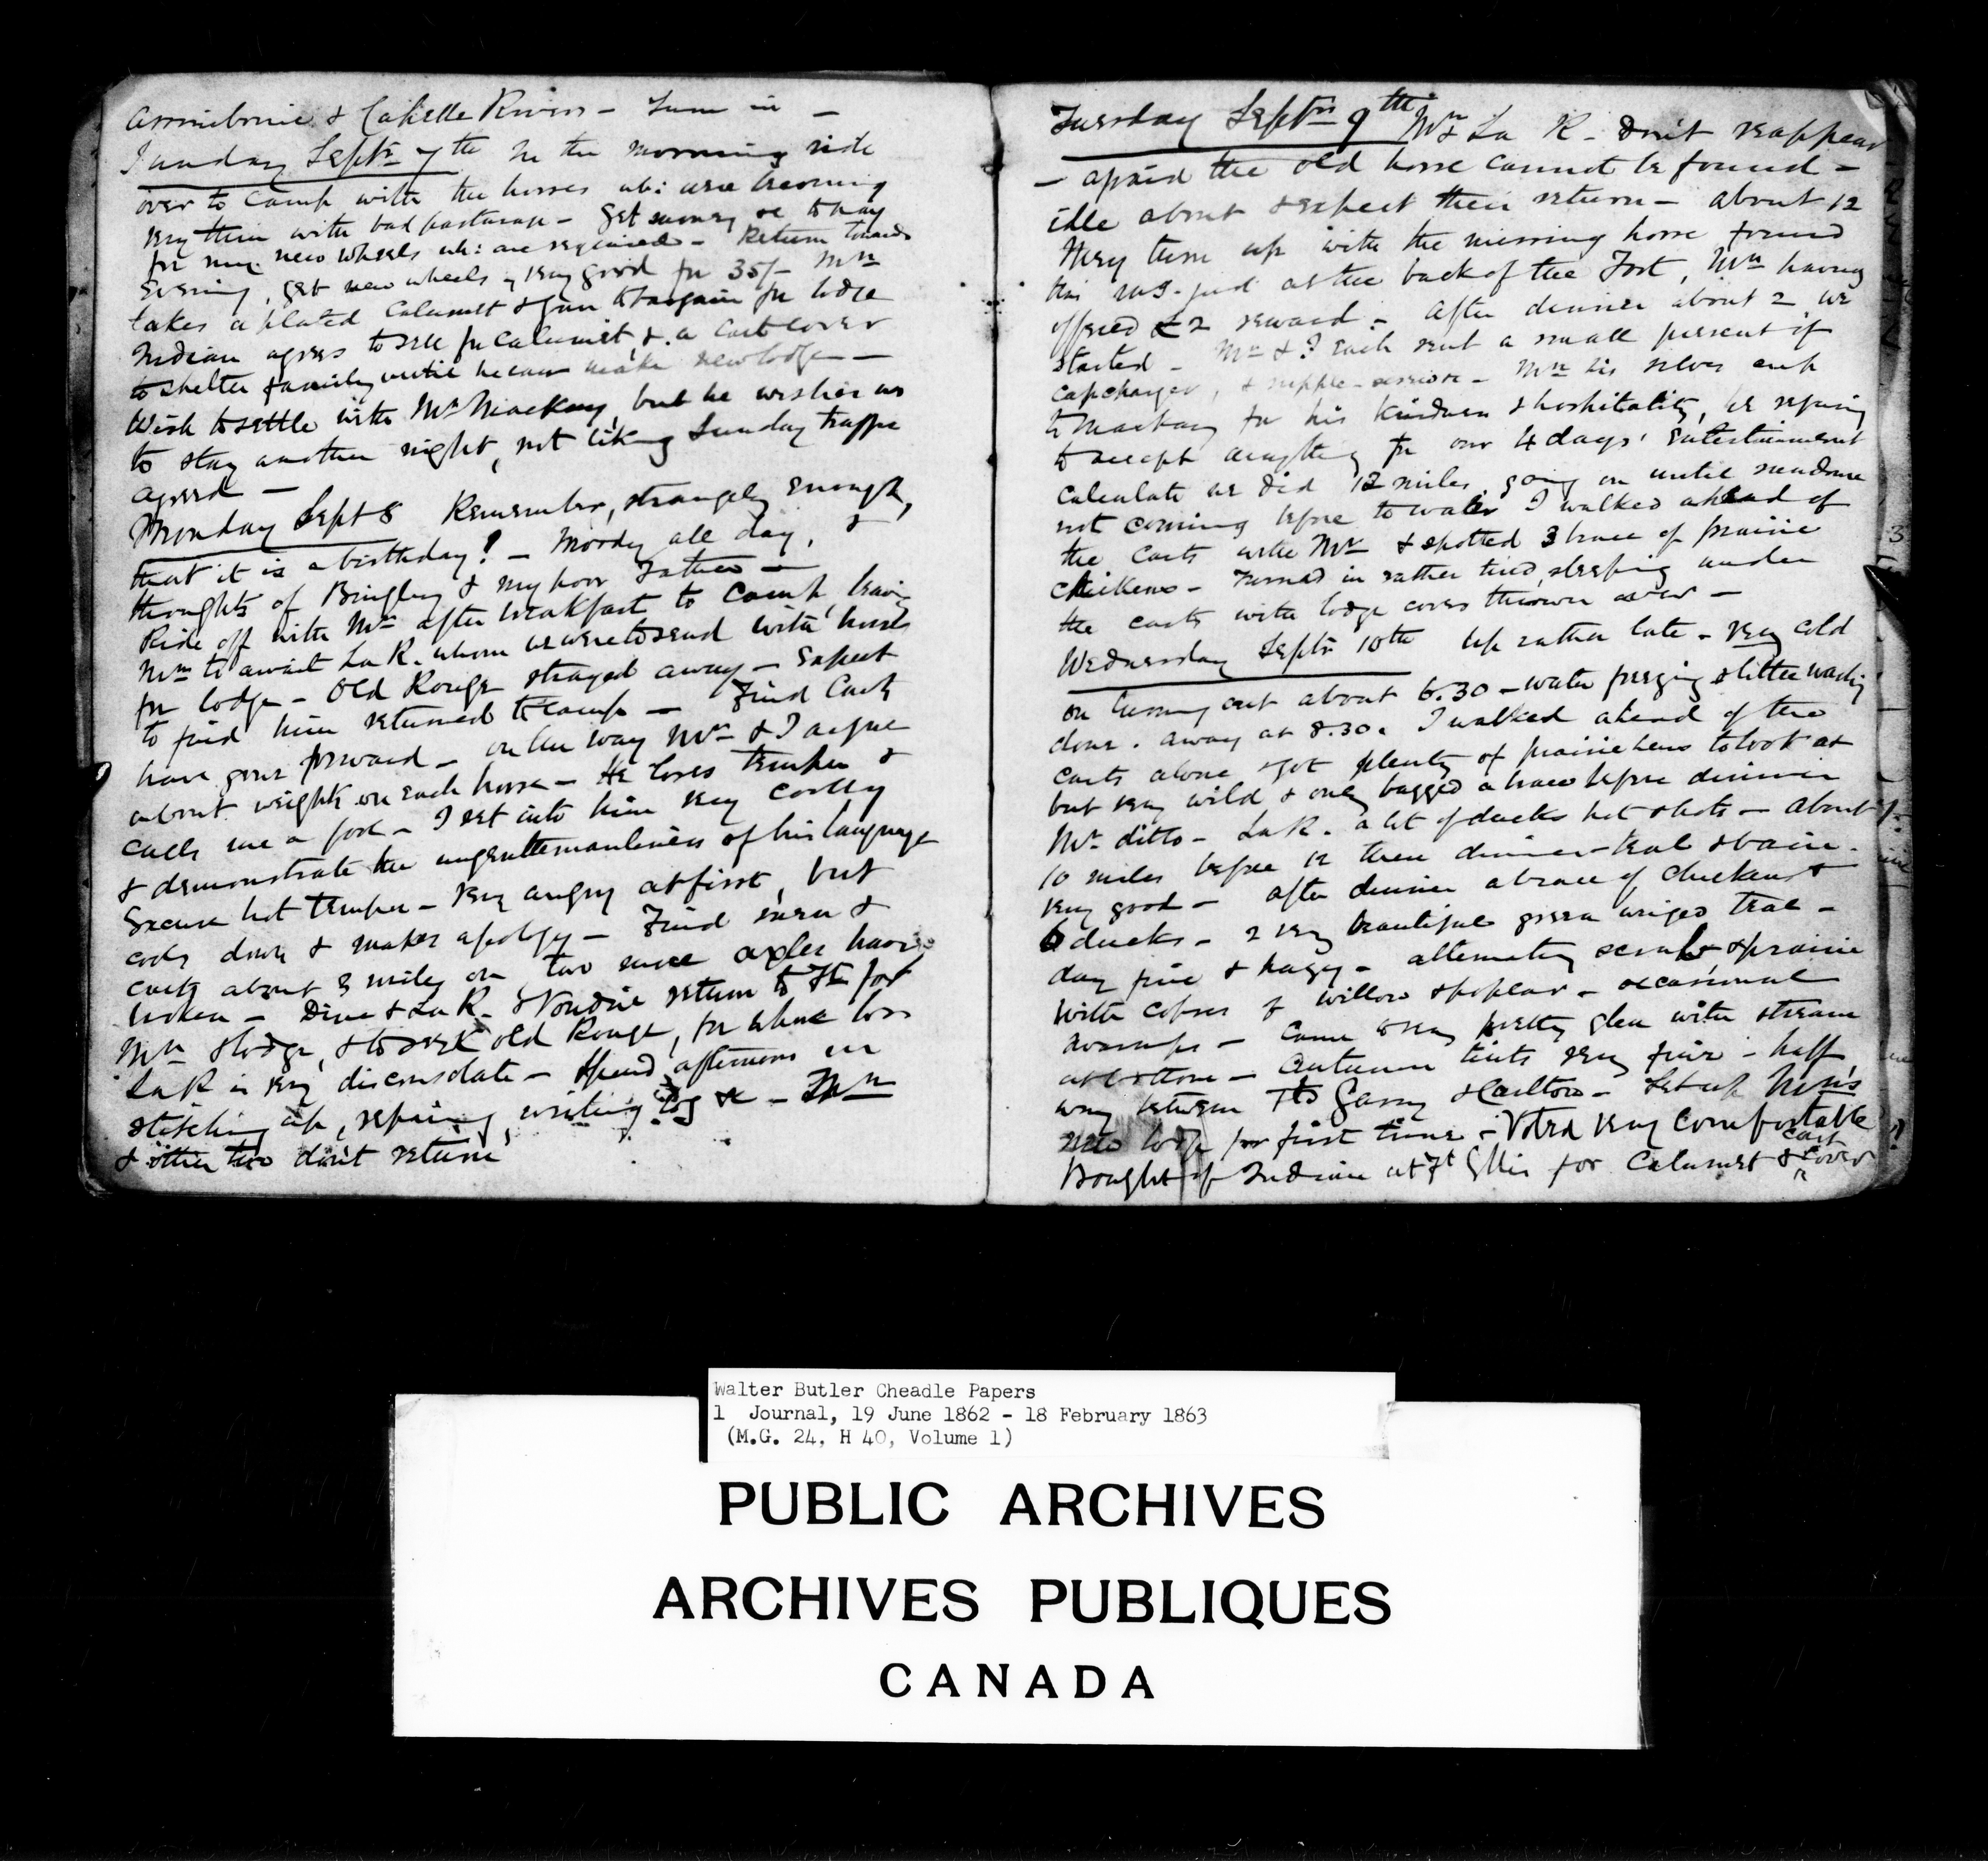 Assiniboine & Calpelle Rivers – Turn in –
Sunday Septr 7th In the morning ride
over to Camp with the horses wh: are becoming
very thin with bad pasturage – Get money &c to pay
for new wheels wh: are required – Return towards
Evening, get new wheels very good for 35/– Mn
takes a plated Calumet & gun to bargain for lodge
Indian agrees to sell for Calumet & a cart cover
to shelter family until he can make new lodge –
Wish to settle with Mr Mackay, but he wishes us
to stay another night, not liking Sunday traffic
agreed –
Monday Sept 8 Remember, strangely enough,
that it is a birthday! – Moody all day, &
thoughts of Bingley & my poor Father –
Ride off with Mr after breakfast to Camp, leaving
Mn to await La R. whom we were to send with horses
for lodge – Old Rouge strayed away – Expect
to find him returned to camp – Find Carts
have gone forward – on the way Mr & I argue
about weights on each horse – He loses temper &
calls me a fool – I set into him very coolly
& demonstrate the ungentlemanliness of his language
Excuse hot temper – Very angry at first, but
cools down & makes apology – Find men &
carts about 3 miles on two more axles having
broken – Dine & La R. & Voudrie return to the fort
Mn & lodge, & to seek old Rouge, for whose loss
La R is very disconsolate – Spend afternoon in
stitching up, repairing, writing log &c – Mn
& other two don't return
Tuesday Septr 9th Mn & La R – don't reappear
– afraid the old horse cannot be found –
idle about & expect their return – about 12
they turn up with the missing horse found
this mg. just at the back of the Fort, Mn having
offered £2 reward – After dinner about 2 we
started – Mr & I each sent a small present of
cap charger, & nipple-screw – Mn his silver cup
to Mackay for his kindness & hospitality, he refusing
to accept anything for our 4 days' entertainment
Calculate we did 12 miles, going on until sundown
not coming before to water I walked ahead of
the carts with Mr & spotted 3 brace of prairie
chickens – Turned in rather tired, sleeping under
the carts with lodge cover thrown over –
Wednesday Septr 10th Up rather late – very cold
on turning out about 6.30 – water freezing & little washing
done. away at 8.30. I walked ahead of the
carts alone & got plenty of prairie hens to look at
but very wild & only bagged a brace before dinner
Mr ditto – La R. a lot of ducks hot shots – About
10 miles before 12 then dinner – teal & bacon.
very good – after dinner a brace of chickens &
6 ducks – 2 very beautiful green winged teal –
day fine & hazy – alternating scrub & prairie
with copses of willow & poplar – occasional
swamps – Came to very pretty glen with stream
at bottom – Autumn tints very fine – half
way between Fts Garry & Carlton – Set up Mn's
new lodge for first time – Voted very comfortable
Bought of Indian at Ft Ellis for Calumet & cart cover
Walter Butler Cheadle Papers
1 Journal, 19 June 1862 - 18 February 1863
(M.G. 24, H 40, Volume 1)
PUBLIC ARCHIVES
ARCHIVES PUBLIQUES
CANADA